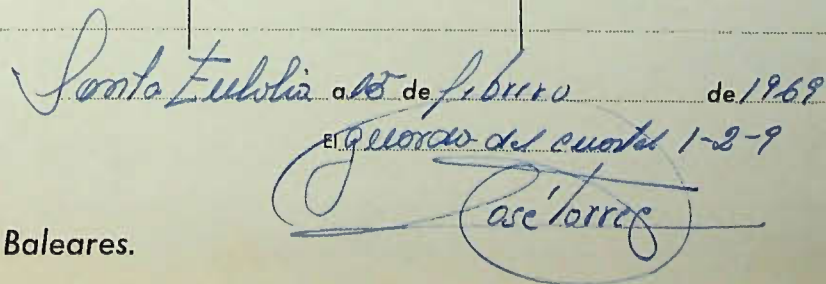 Santa Eulolia a 15 de febrero de 1969
El guarda del cuartel 1-2-9
José Torres
Baleares.